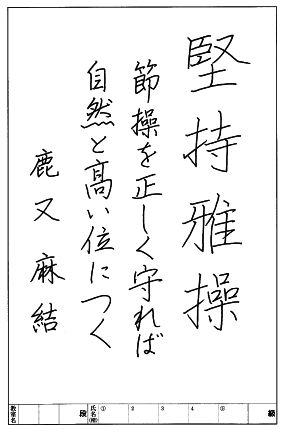 堅持雅操
節操を正しく守れば
自然と高い位につく
鹿又麻結
教室名 段 氏名(姓) ① 2 3 4 ⑤ 級